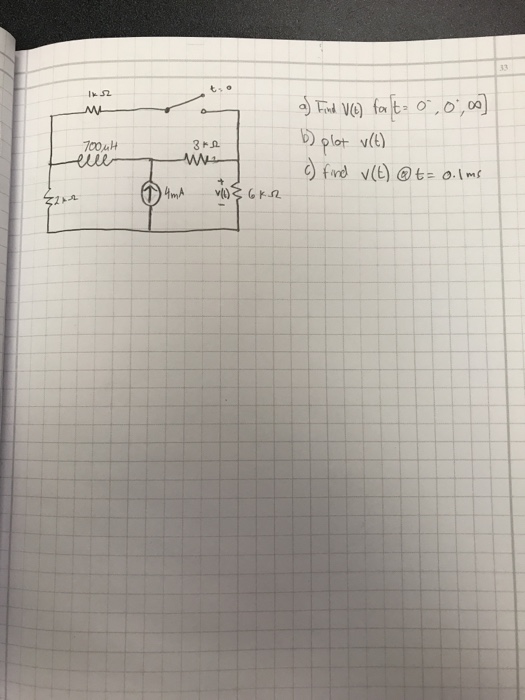 1kΩ
t=0
700μH
3kΩ
2kΩ
4mA
+
v(t)
-
6kΩ
a) Find V(t) for [t= 0⁻, 0⁺, ∞]
b) plot v(t)
c) find v(t) @ t= 0.1ms